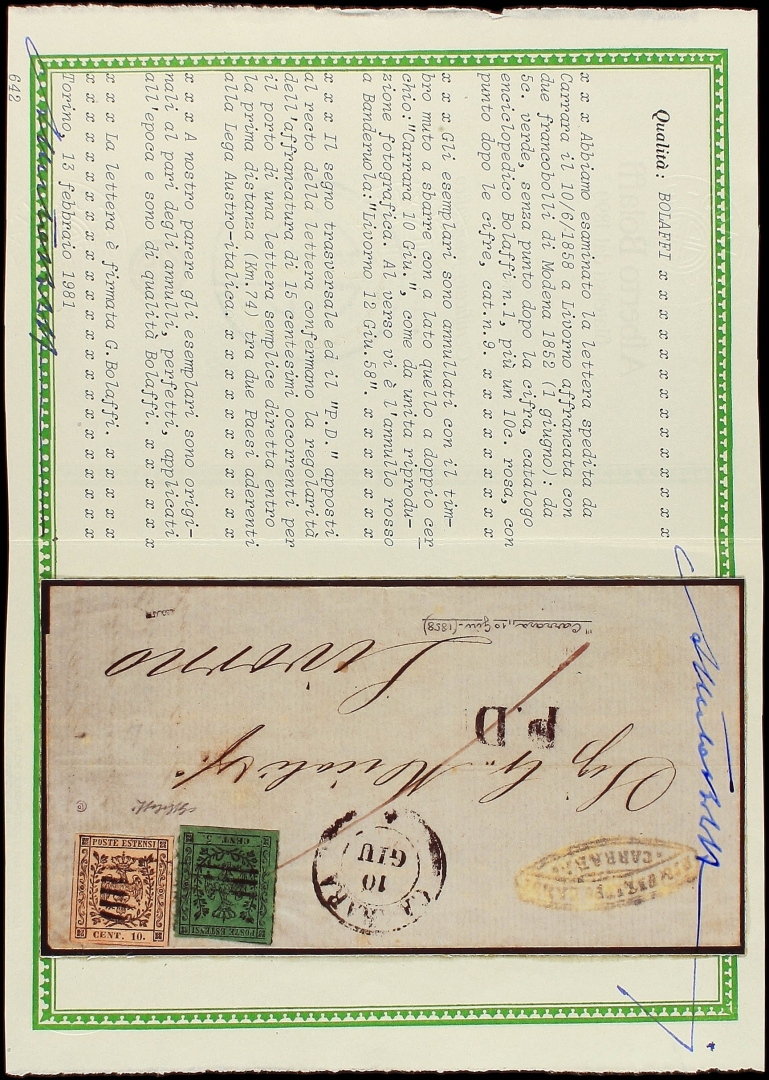 Qualità: BOLAFFI x x x x x x x x x x x x
x x x Abbiamo esaminato la lettera spedita da
Carrara il 10/6/1858 a Livorno affrancata con
due francobolli di Modena 1852 (1 giugno): da
5c. verde, senza punto dopo la cifra, catalogo
enciclopedico Bolaffi n.1, più un 10c. rosa, con
punto dopo le cifre, cat.n.9. x x x x x x x
x x x Gli esemplari sono annullati con il tim-
bro muto a sbarre con a lato quello a doppio cer
chio:"Carrara 10 Giu.", come da unita riprodu-
zione fotografica. Al verso vi è l'annullo rosso
a Banderuola:"Livorno 12 Giu.58". x x x x x x
x x x Il segno trasversale ed il "P.D." apposti
al recto della lettera confermano la regolarità
dell'affrancatura di 15 centesimi occorrenti per
il porto di una lettera semplice diretta entro
la prima distanza (km.74) tra due Paesi aderenti
alla Lega Austro-italica. x x x x x x x x x x
x x x A nostro parere gli esemplari sono origi-
nali al pari degli annulli, perfetti, applicati
all'epoca e sono di qualità Bolaffi. x x x x x
x x x La lettera è firmata G.Bolaffi. x x x x x
x x x x x x x x x x x x x x x x x x x x x x
Torino, 13 febbraio 1981
642
"Carrara, 10 Giu. (1858)
P.D
Livorno
CARRARA
10
GIU
CARRARA
POSTE ESTENSI
CENT. 5
POSTE ESTENSI
CENT. 10.